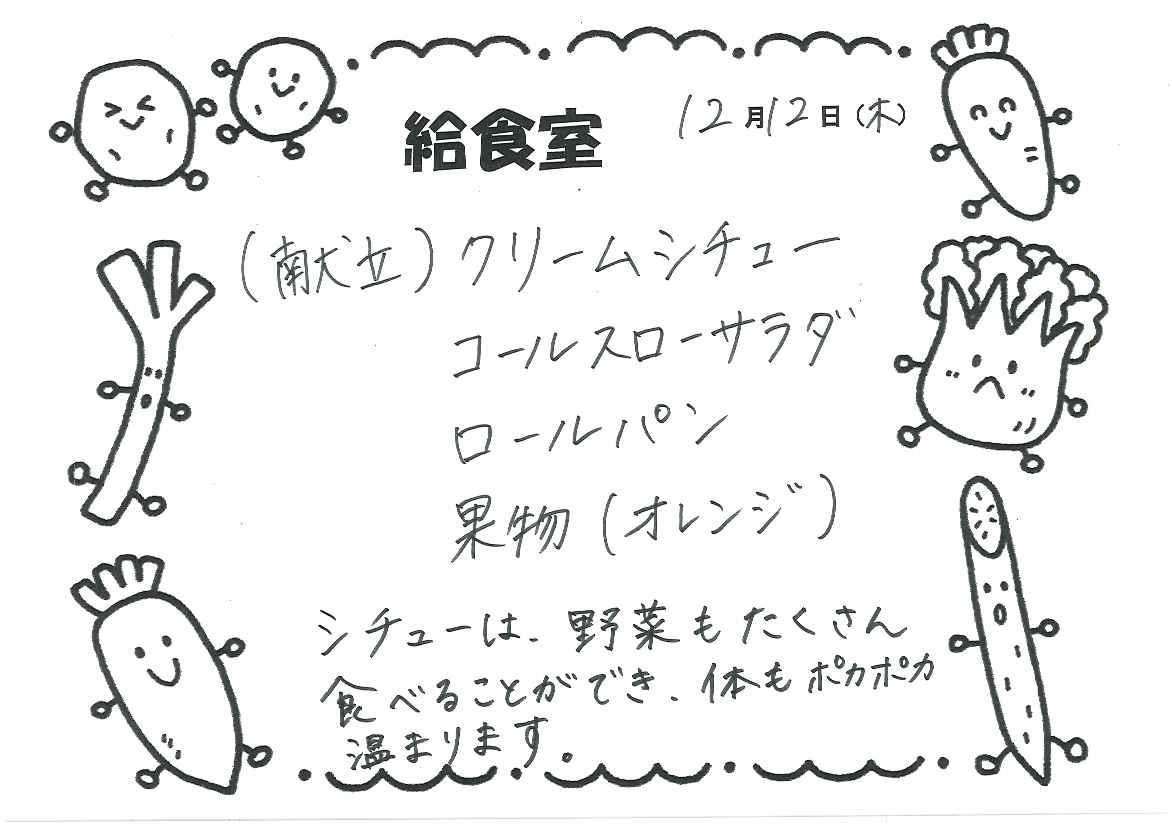 給食室
12月12日(木)
(献立)クリームシチュー
コールスローサラダ
ロールパン
果物(オレンジ)
シチューは、野菜もたくさん
食べることができ、体もポカポカ
温まります。